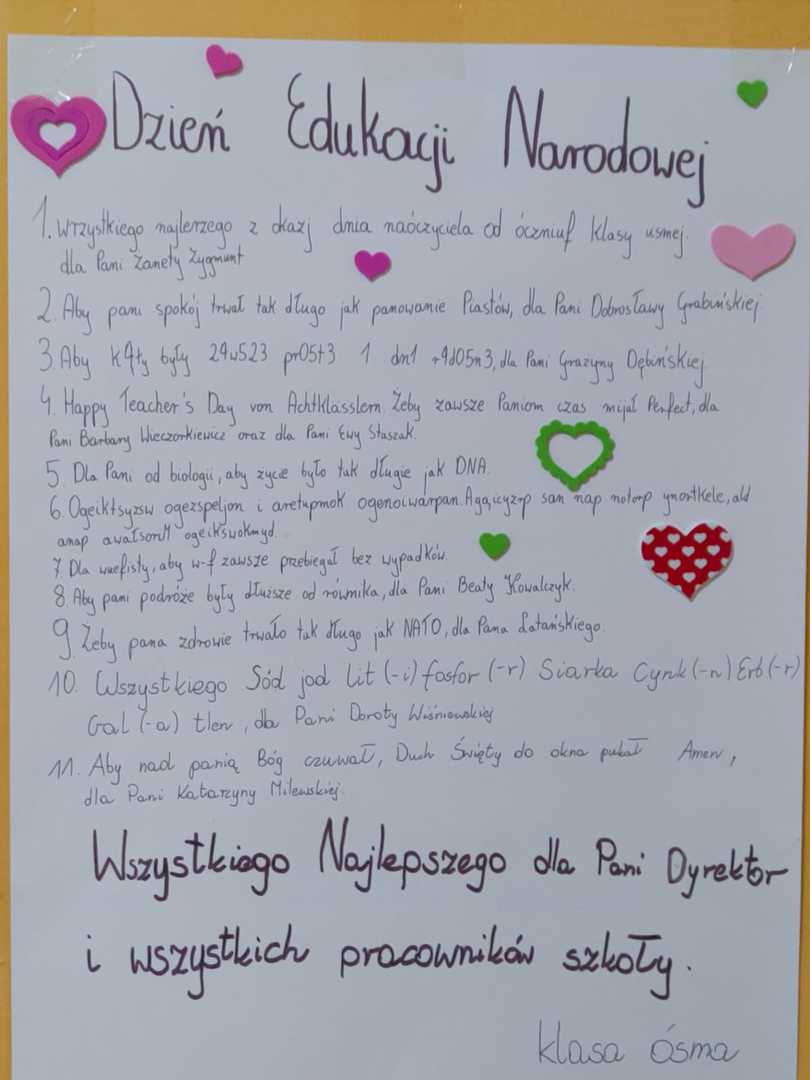 Dzień Edukacji Narodowej
1. Wrzystkiego najlerzego z okazj dnia naóczyciela od óczniuf klasy usmej.
dla Pani Żanety Zygmunt
2. Aby pani spokój trwał tak długo jak panowanie Piastów, dla Pani Dobrosławy Grabińskiej
3. Aby k4ty były 24w523 pr05t3 1 dn1 r4d05n3, dla Pani Grażyny Dębińskiej
4. Happy Teacher's Day von Achtklässlern. Żeby zawsze Paniom czas mijał Perfect, dla
Pani Barbary Wieczorkiewicz oraz dla Pani Ewy Staszak.
5. Dla Pani od biologii, aby życie było tak długie jak DNA.
6. Ogeiktsyzsw ogezspeljan i aretupmok ogenoiwarpan. Ągąicyzrp san nap notorp ynortkele, ald
anap awałsoriM ogeikswokmyd.
7. Dla wuefisty, aby w-f zawsze przebiegał bez wypadków.
8. Aby pani podróże były dłuższe od równika, dla Pani Beaty Kowalczyk.
9. Żeby pana zdrowie trwało tak długo jak NATO, dla Pana Łatańskiego.
10. Wszystkiego Sód jod Lit (-i) fosfor (-r) Siarka Cynk (-n) Erb (-r)
Gal (-a) tlen, dla Pani Doroty Wiśniewskiej
11. Aby nad panią Bóg czuwał, Duch Święty do okna pukał Amen,
dla Pani Katarzyny Milewskiej.
Wszystkiego Najlepszego dla Pani Dyrektor
i wszystkich pracowników szkoły.
klasa ósma